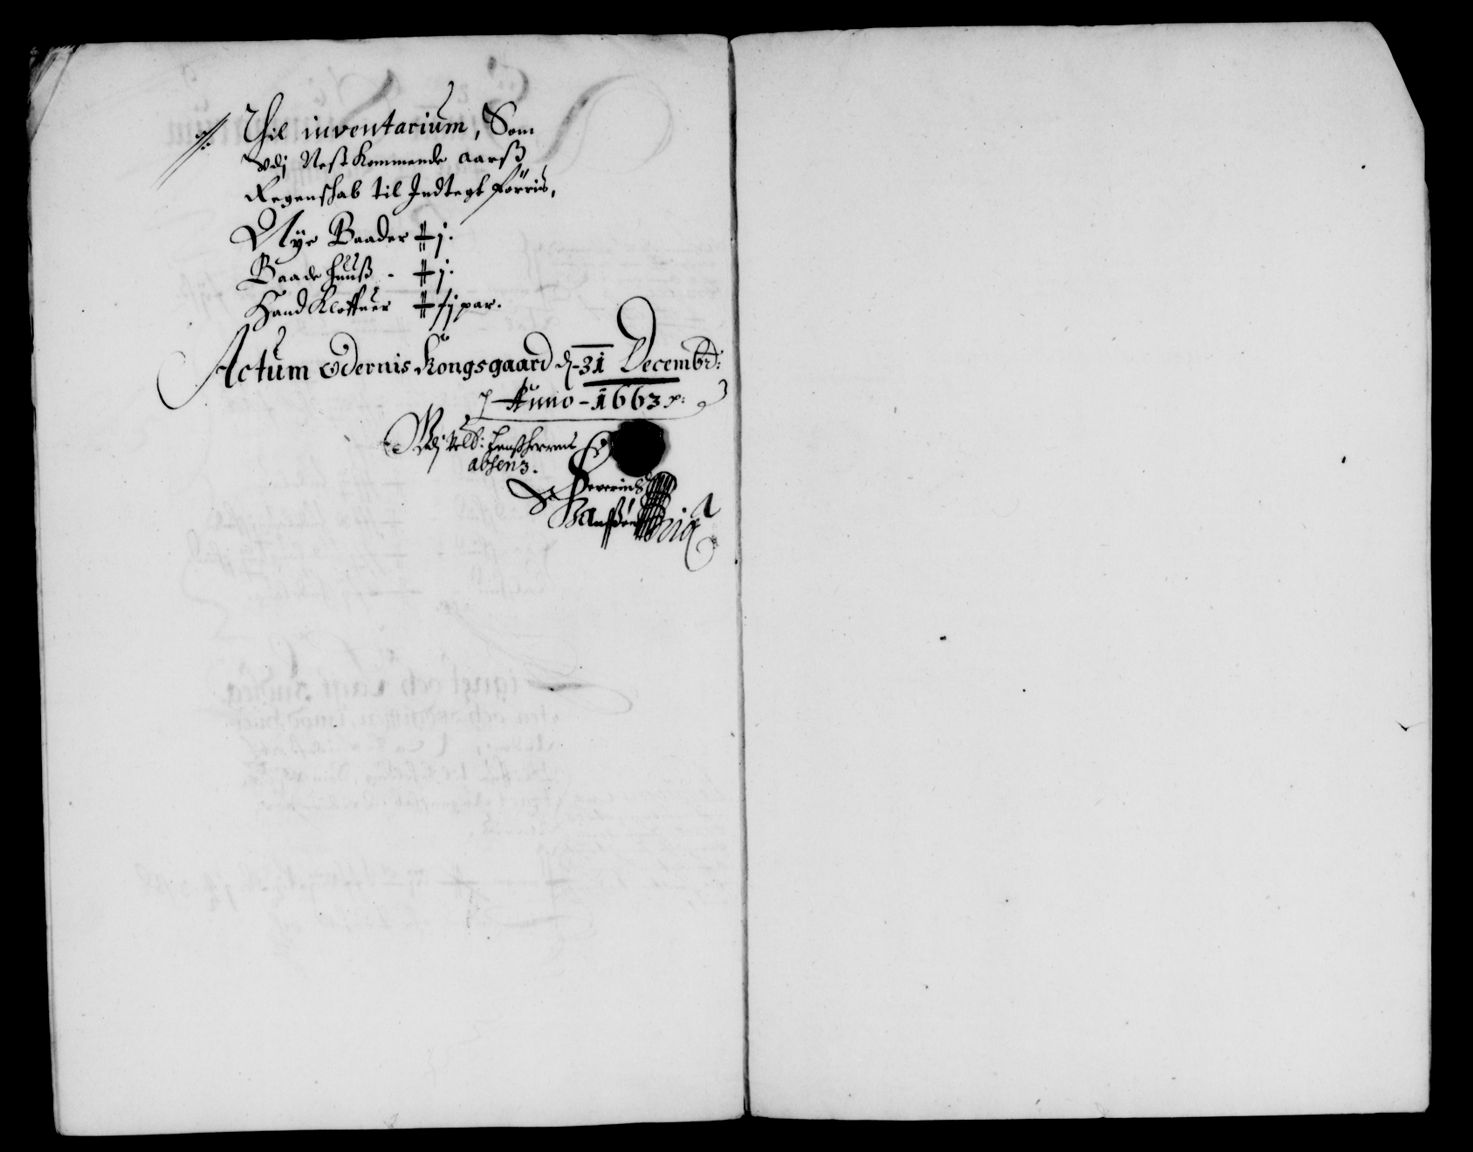 Thil inventarium, Som
udj Nest Kommende aarß
Regenschab til Indtegt föriis,
Nye Baader # j.
Baade huuß - # j.
Hand Kloffuer # ij par.
Actum odernis Kongsgaard d. 31 Decembr:
Anno - 1663 p:
Udj Velb: Lenßherrens
absens.
Severin
Hanßen